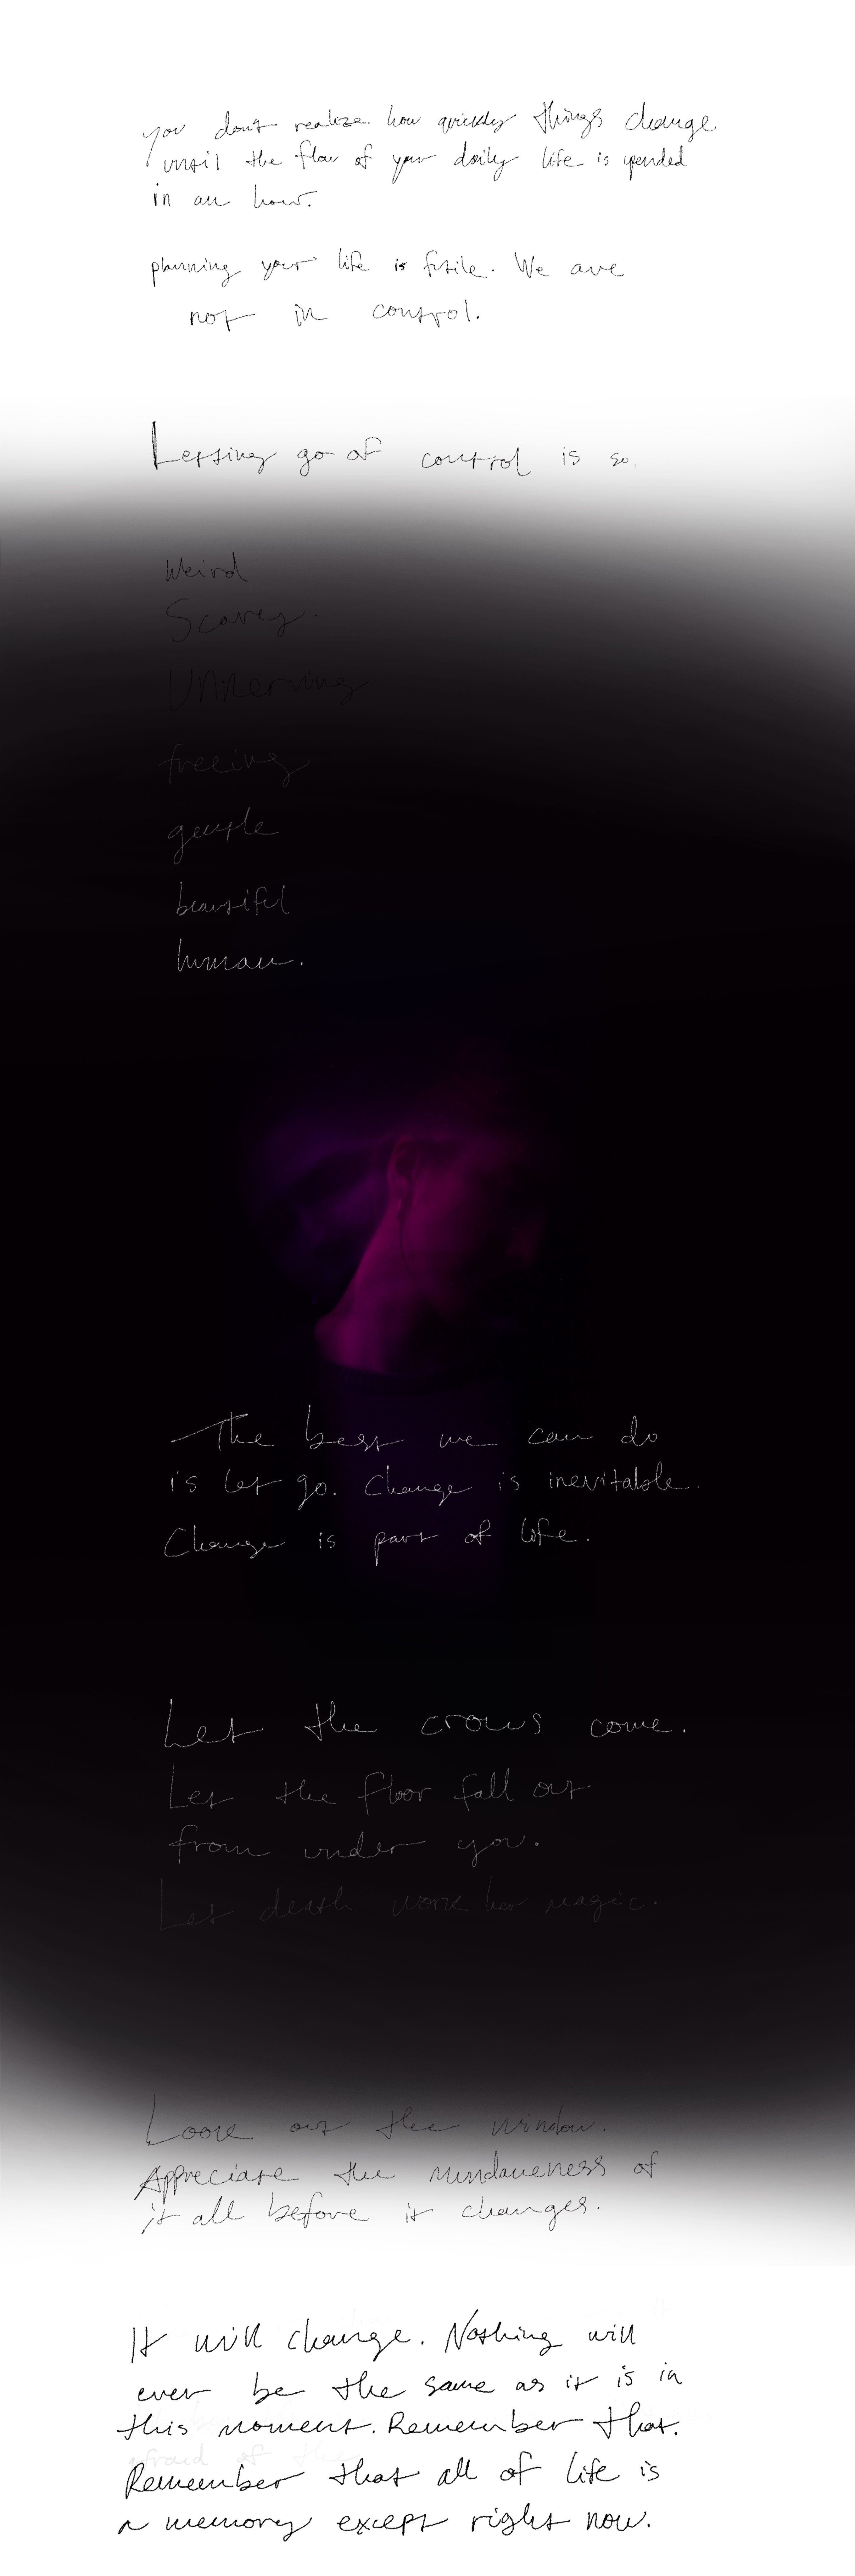 you don't realize how quickly things change
until the flow of your daily life is upended
in an hour.
planning your life is futile. We are
not in control.
Letting go of control is so
Weird
Scarey.
Unnerving
freeing
gentle
beautiful
human.
The best we can do
is let go. Change is inevitable.
Change is part of life.
Let the crows come.
Let the floor fall out
from under you.
Let death work her magic.
Look out the window.
Appreciate the mundaneness of
it all before it changes.
It will change. Nothing will
ever be the same as it is in
this moment. Remember that.
afraid of the
Remember that all of life is
a memory except right now.